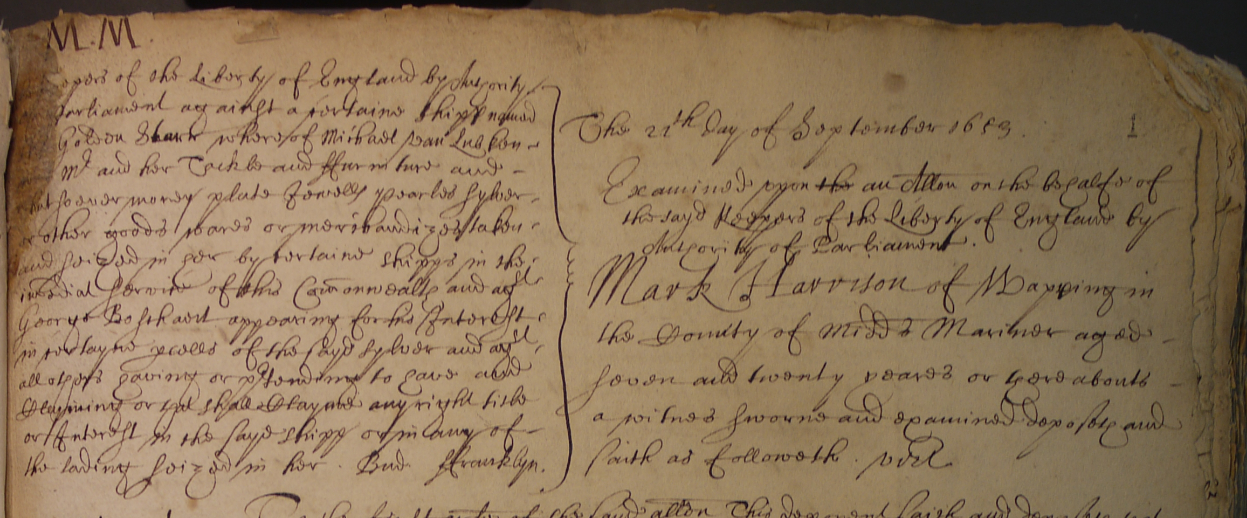 M. M.
epers of the Liberty of England by Authority
Parliament against a certaine shipp named
Golden Starr whereof Michael van Lubken
Mr and her Tackle and ffurniture and
whatsoever money plate Jewells pearles sylver
or other goods wares or merchandizes taken
and seized in her by certaine shipps in the
imediat service of this Comonwealth and agst
George Boschaert appearing for his Interest
in certayne pcells of the sayd sylver and agst
all others having or ptending to have and
Clayming or yt shall Clayme any right title
or Interest in the sayd shipp or in any of
the lading seized in her. Bud ffrancklyn.
The 21th day of September 1653. 1
Examined upon the an Allon on the behalfe of
the sayd Keepers of the Liberty of England by
Authority of Parliament.
Mark Harrison of Wapping in
the County of Midds Mariner aged
seven and twenty yeares or thereabouts
a witnes sworne and examined deposeth and
saith as followeth. vizt
of the said allon This deponent saith and